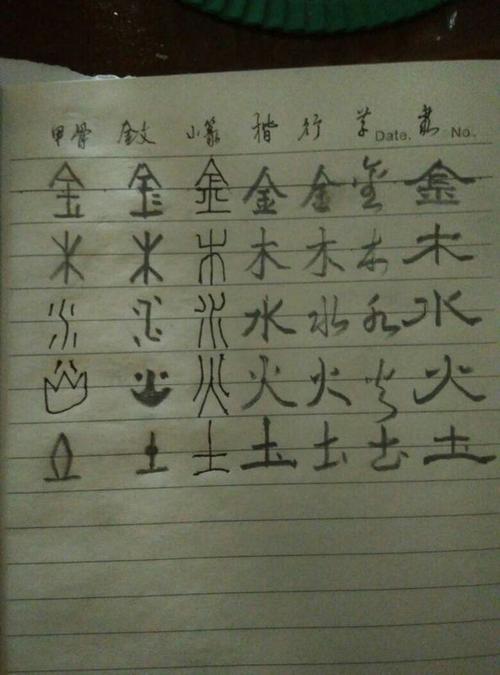 甲骨 金文 小篆 楷 行 草 Date. 隶 No.
金 金 金 金 金 金 金
木 木 木 木 木 木 木
水 水 水 水 水 水 水
火 火 火 火 火 火 火
土 土 土 土 土 土 土